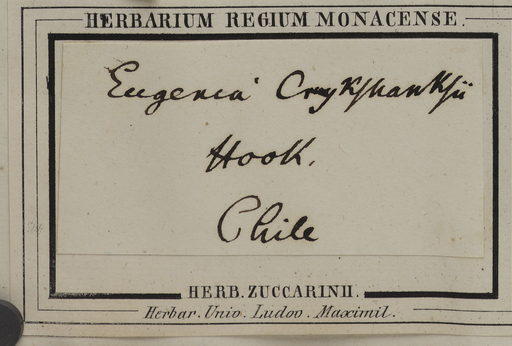 HERBARIUM REGIUM MONACENSE.
Eugenia Cruykshanksii
Hook.
Chile
HERB. ZUCCARINII.
Herbar. Univ. Ludov. Maximil.